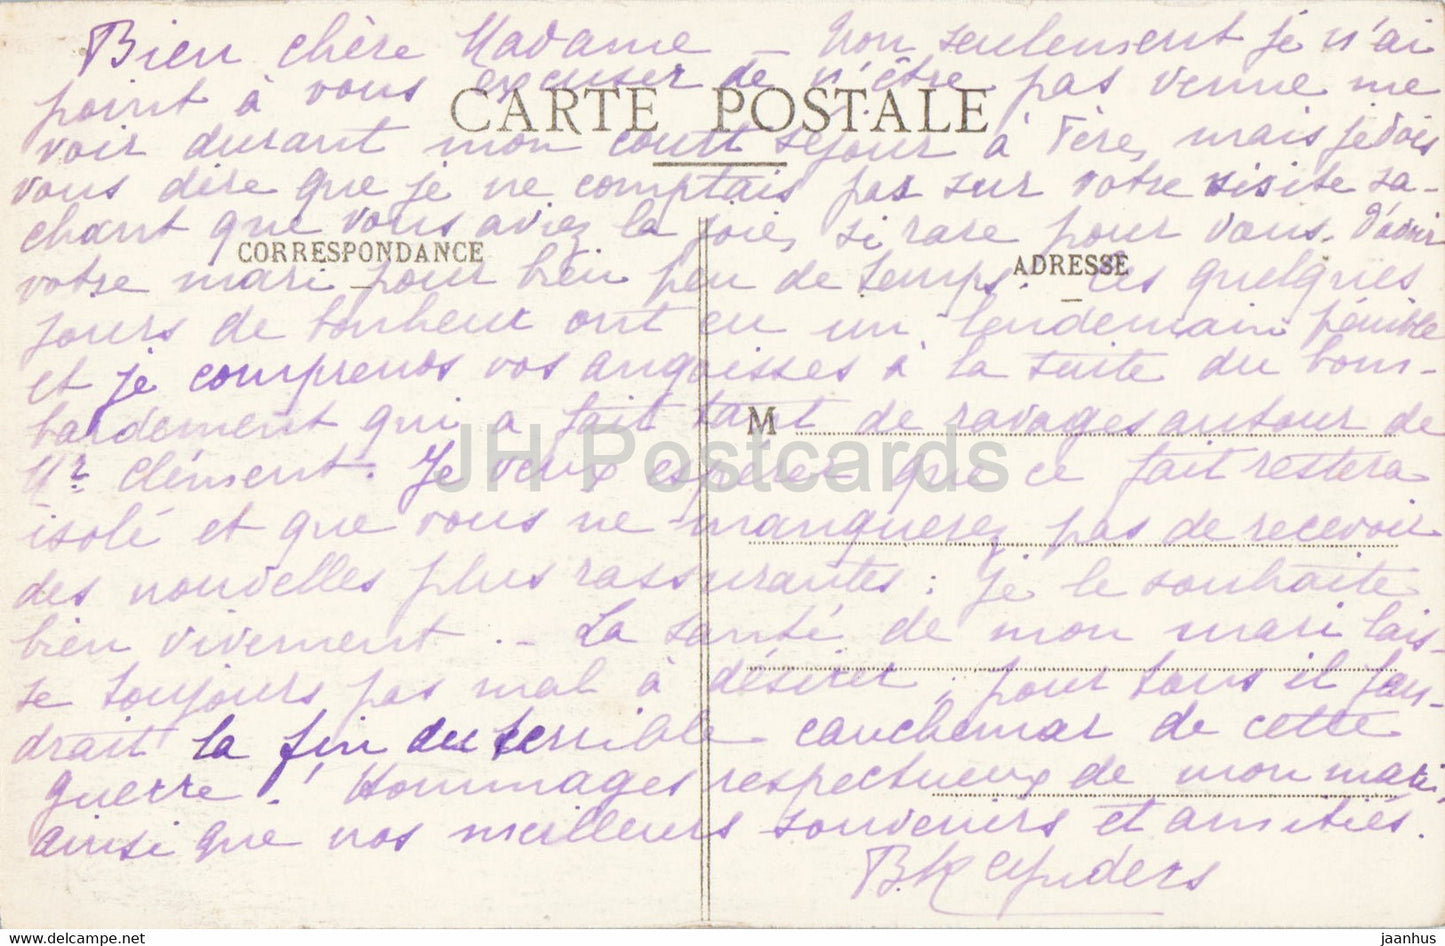 Bien chère Madame — Non seulement je n'ai
point à vous excuser de n'être pas venue me
CARTE POSTALE
voir durant mon court séjour à Fère, mais je dois
vous dire que je ne comptais pas sur votre visite sa-
chant que vous aviez la joie, si rare pour vous, d'avoir
CORRESPONDANCE
ADRESSE
votre mari pour bien peu de temps. Ces quelques
jours de bonheur ont eu un lendemain pénible
et je comprends vos angoisses à la suite du bom-
bardement qui a fait tant de ravages autour de
M
Mr Clément. Je veux espérer que ce fait restera
JH Postcards
isolé et que vous ne manquerez pas de recevoir
des nouvelles plus rassurantes : je le souhaite
bien vivement. - La santé de mon mari lais-
se toujours pas mal à désirer, pour tous il fau-
drait la fin du terrible cauchemar de cette
guerre ! Hommages respectueux de mon mari,
ainsi que nos meilleurs souvenirs et amitiés.
jaanhus